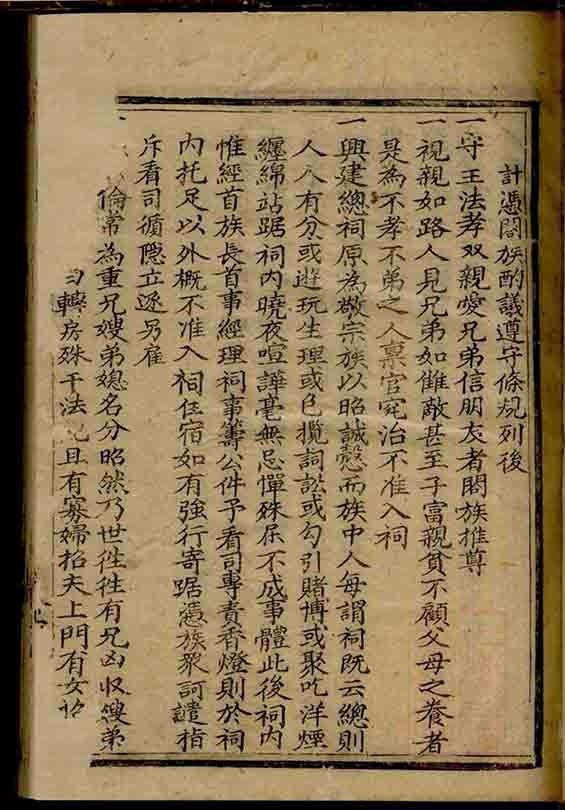 計憑閤族酌議遵守條規列後
一守王法孝双親愛兄弟信朋友者閤族推尊
一視親如路人見兄弟如雠敵甚至子富親貧不顧父母之養者
是為不孝不弟之人禀官究治不准入祠
一興建總祠原為敬宗族以昭誠慤而族中人每謂祠既云總則
人人有分或遊玩生理或包攬詞訟或勾引賭博或聚吃洋煙
纏綿站踞祠内曉夜喧譁毫無忌憚殊屈不成事體此後祠内
惟經首族長首事經理祠事籌公件予看司專責香燈則於祠
内托足以外概不准入祠住宿如有強行寄踞憑族眾訶譴指
斥看司循隱立逐另雇
倫常為重兄嫂弟媳名分昭然乃世徃徃有兄凶収嫂弟
轉房殊干法 且有寡婦招夫上門有女